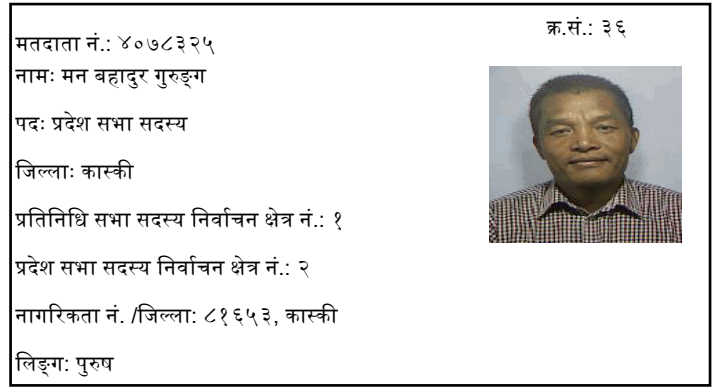 क्र.सं.: ३६
मतदाता नं.: ४०७८३२५
नामः मन बहादुर गुरुङ्ग
पदः प्रदेश सभा सदस्य
जिल्लाः कास्की
प्रतिनिधि सभा सदस्य निर्वाचन क्षेत्र नं.: १
प्रदेश सभा सदस्य निर्वाचन क्षेत्र नं.: २
नागरिकता नं. /जिल्ला: ८१६५३, कास्की
लिङ्ग: पुरुष